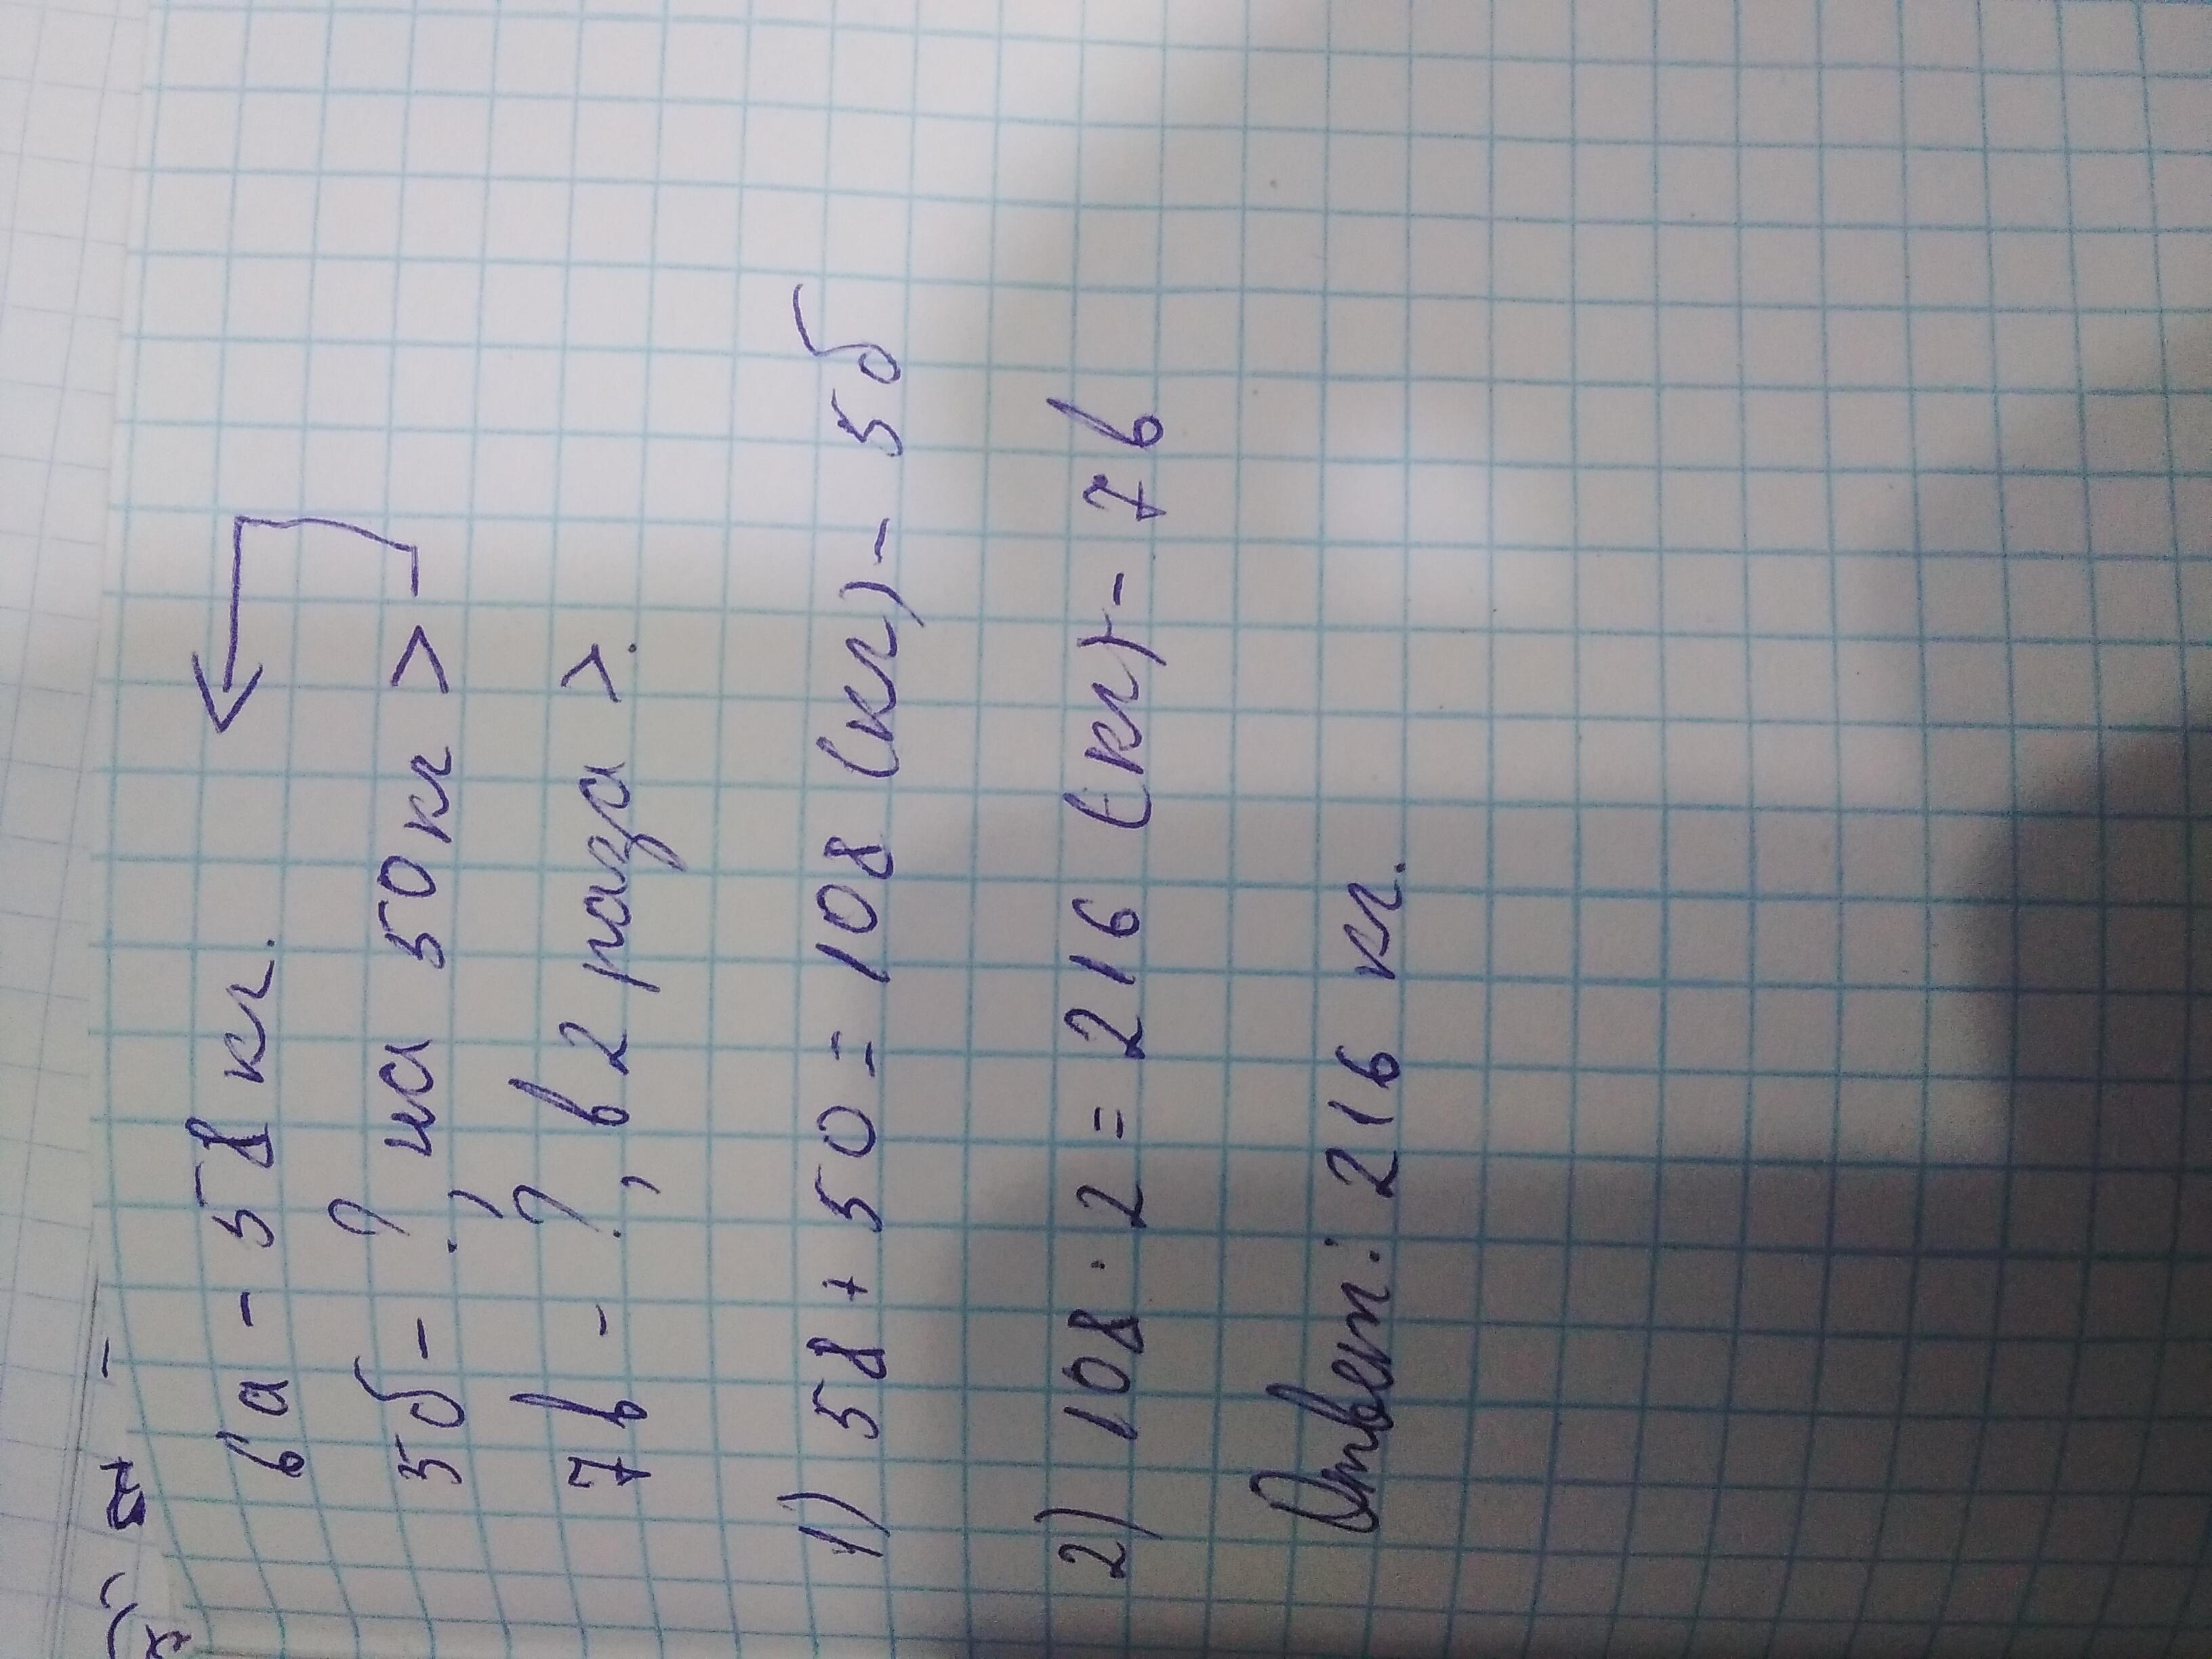 6а - 58 кг.
5б - ? на 50 кг >
7в - ?, в 2 раза >.
1) 58 + 50 = 108 (кг) - 5б
2) 108 · 2 = 216 (кг) - 7в
Ответ: 216 кг.